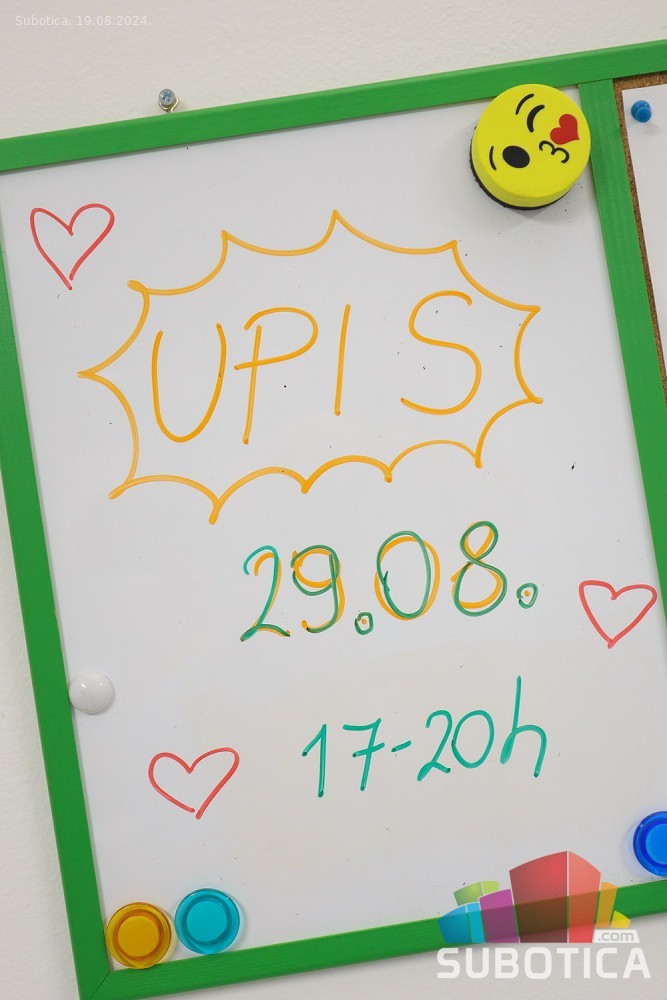 Subotica, 19.08.2024.
UPIS
29.08.
17-20h
.com
SUBOTICA